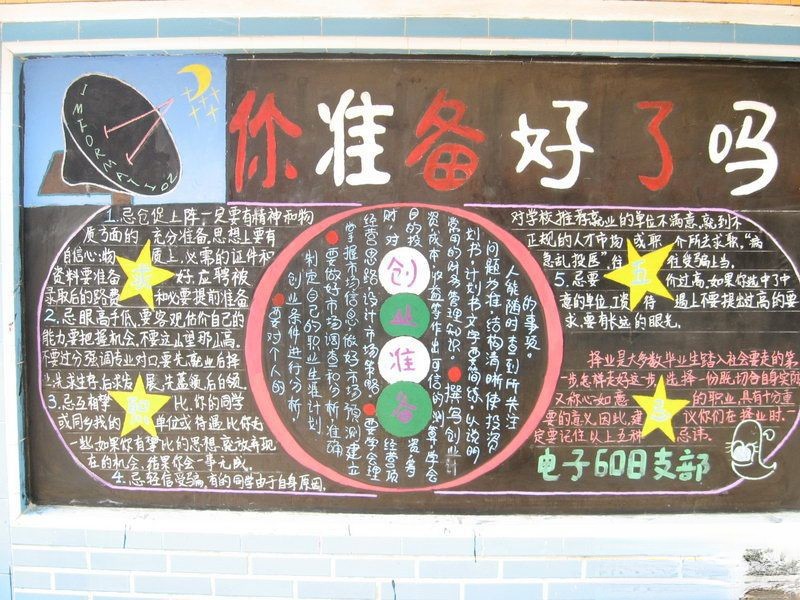 INFORMATION
你准备好了吗
1.忌仓促上阵一定要有精神和物
质方面的充分准备.思想上要有
自信心;物质上,必需的证件和
资料要准备好;应聘被
录取后的路费和必要提前准备
2.忌眼高手低,要客观估价自己的
能力要把握机会,不要这山望那山高.
不要过分强调专业对口要先就业后择
业,先求生存,后求发展,先蓝领,后白领.
3.忌互相攀比,你的同学
或同乡找的单位或待遇比你好
一些,如果你有攀比的思想,就放弃现
在的机会,结果你会一事无成.
4.忌轻信受骗,有的同学由于自身原因,
求
创业准备
要对个人的
创业条件进行分析,
制定自己的职业生涯计划
要做好市场调查和分析准确
掌握市场信息,做好市场预测,建立
经营思路,设计市场策略.
要学会理
撰写创业计
划书,计划书文字要简练,以说明
问题为准,结构清晰,使投资
人能随时查到所关注
的事项.
对学校推荐就业的单位不满意,就到不
正规的人才市场或职介所去求职,"病
急乱投医"往往受骗上当.
5.忌要价过高,如果你选中了中
意的单位,工资待遇上不要提出过高的要
求,要有长远的眼光.
五
择业是大多数毕业生踏入社会要走的第
一步,怎样走好这一步,选择一份既切合自身实际
又称心如意的职业,具有十分重
要的意义,因此,建议你们在择业时一
定要记住以上五种忌讳.
忌
电子608支部